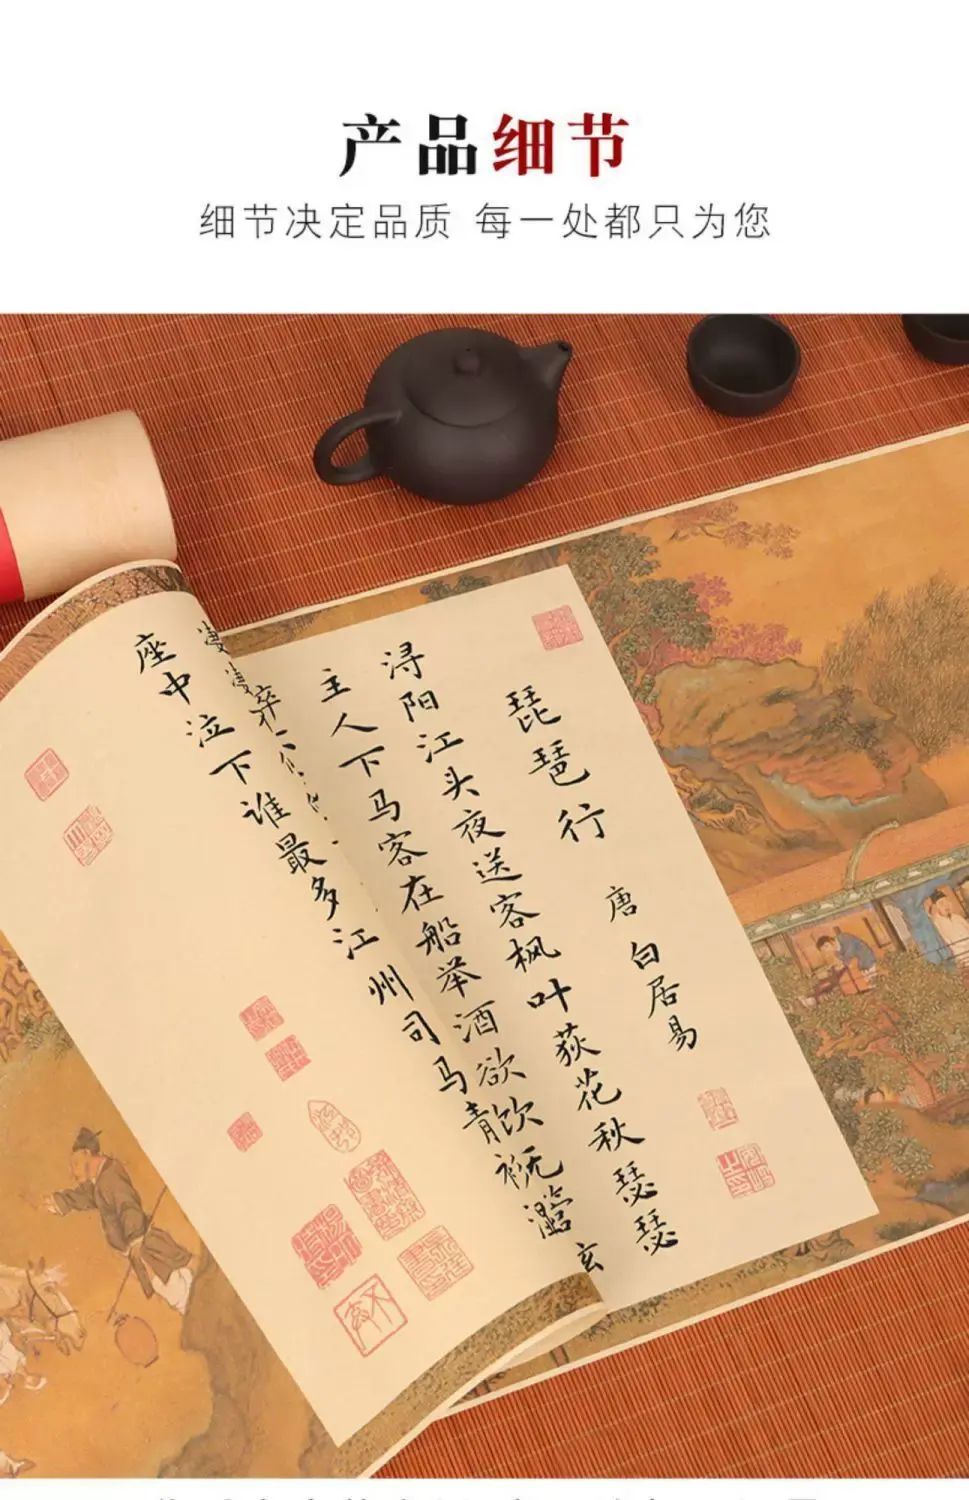 产品细节
细节决定品质 每一处都只为您
琵琶行 唐 白居易
浔阳江头夜送客枫叶荻花秋瑟瑟
主人下马客在船举酒欲饮无管玄
座中泣下谁最多江州司马青衫湿